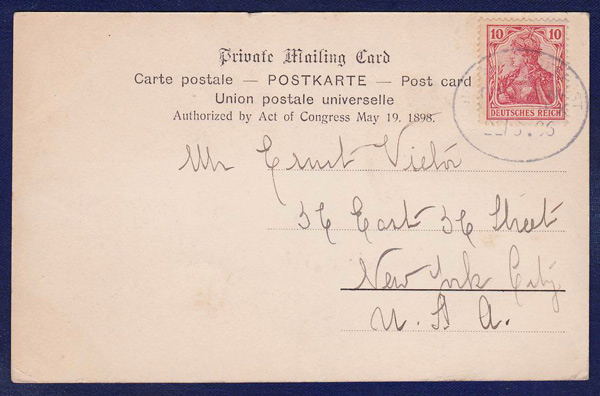 Private Mailing Card
Carte postale — POSTKARTE — Post card
Union postale universelle
Authorized by Act of Congress May 19. 1898.
10 10
DEUTSCHES REICH
Mr Ernst Victor
36 East 36 Street
New York City
U. S A.